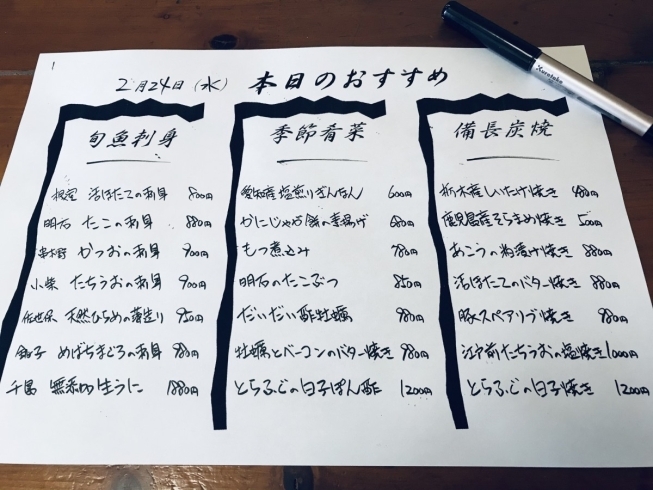 1
2月24日(水) 本日のおすすめ
旬魚刺身
根室 活ほたての刺身 800円
明石 たこの刺身 880円
串木野 かつおの刺身 900円
小柴 たちうおの刺身 900円
佐世保 天然ひらめの薄造り 950円
銚子 めばちまぐろの刺身 980円
千島 無添加生うに 1880円
季節肴菜
愛知産塩煎りぎんなん 600円
かにじゃが餅の素揚げ 680円
もつ煮込み 780円
明石のたこぶつ 850円
だいだい酢牡蠣 980円
牡蠣とベーコンのバター焼き 980円
とらふぐの白子ぽん酢 1200円
備長炭焼
栃木産しいたけ焼き 480円
鹿児島産そらまめ焼き 500円
あこうの粕漬け焼き 880円
活ほたてのバター焼き 880円
豚スペアリブ焼き 980円
江戸前たちうおの塩焼き 1000円
とらふぐの白子焼き 1200円
Kuretake